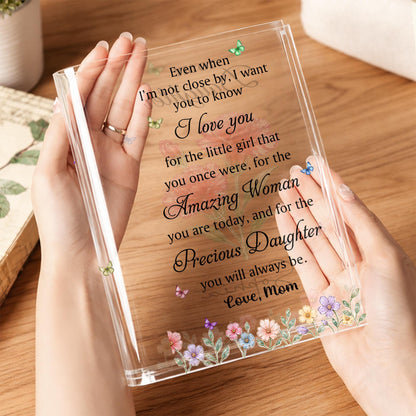 Even when
I'm not close by, I want
you to know
I love you
for the little girl that
you once were, for the
Amazing Woman
you are today, and for the
Precious Daughter
you will always be.
Love, Mom